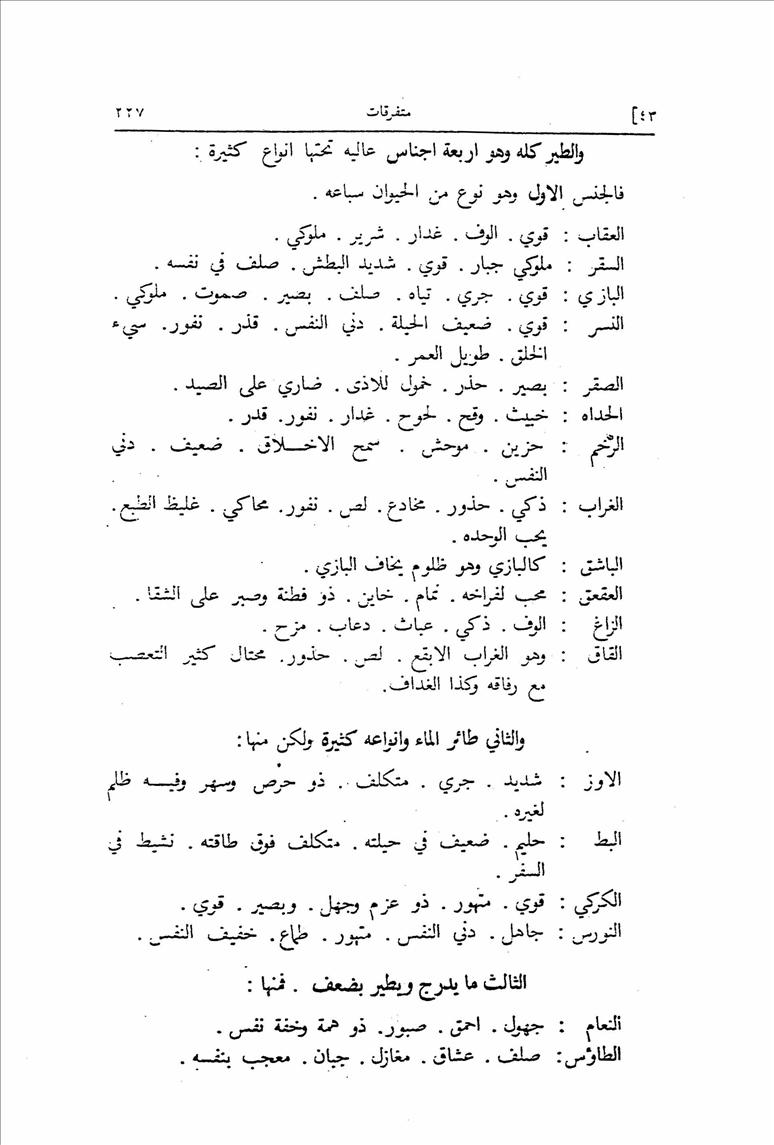 ٤٣]
متفرقات
٢٢٧
والطير كله وهو اربعة اجناس عاليه تحتها انواع كثيرة :
فالجنس الاول وهو نوع من الحيوان سباعه .
العقاب : قوي . الوف . غدار . شرير . ملوكي .
السقر : ملوكي جبار . قوي . شديد البطش . صلف في نفسه .
البازي : قوي . جري . تياه . صلف . بصير . صموت . ملوكي .
النسر : قوي . ضعيف الحيلة . دني النفس . قذر . نفور . سيء
الخلق . طويل العمر .
الصقر : بصير . حذر . خمول للاذى . ضاري على الصيد .
الحداه : خبيث . وقح . لحوح . غدار . نفور . قدر .
الرخم : حزين . موحش . سمح الاخلاق . ضعيف . دني
النفس .
الغراب : ذكي . حذور . مخادع . لص . نفور . محاكي . غليظ الطبع .
يحب الوحده .
الباشق : كالبازي وهو ظلوم يخاف البازي .
العقعق : محب لفراخه . نمام . خاين . ذو فطنة وصبر على الشقا .
الزاغ : الوف . ذكي . عباث . دعاب . مزح .
القاق : وهو الغراب الابقع . لص . حذور . محتال كثير التعصب
مع رفاقه وكذا الغداف .
والثاني طائر الماء وانواعه كثيرة ولكن منها :
الاوز : شديد . جري . متكلف . ذو حرص وسهر وفيه ظلم
لغيره .
البط : حليم . ضعيف في حيلته . متكلف فوق طاقته . نشيط في
السفر .
الكركي : قوي . متهور . ذو عزم وجهل . وبصير . قوي .
النورس : جاهل . دني النفس . متهور . طماع . خفيف النفس .
الثالث ما يدرج ويطير بضعف . فمنها :
النعام : جهول . احمق . صبور . ذو همة وخفة نفس .
الطاؤس : صلف . عشاق . مغازل . جبان . معجب بنفسه .